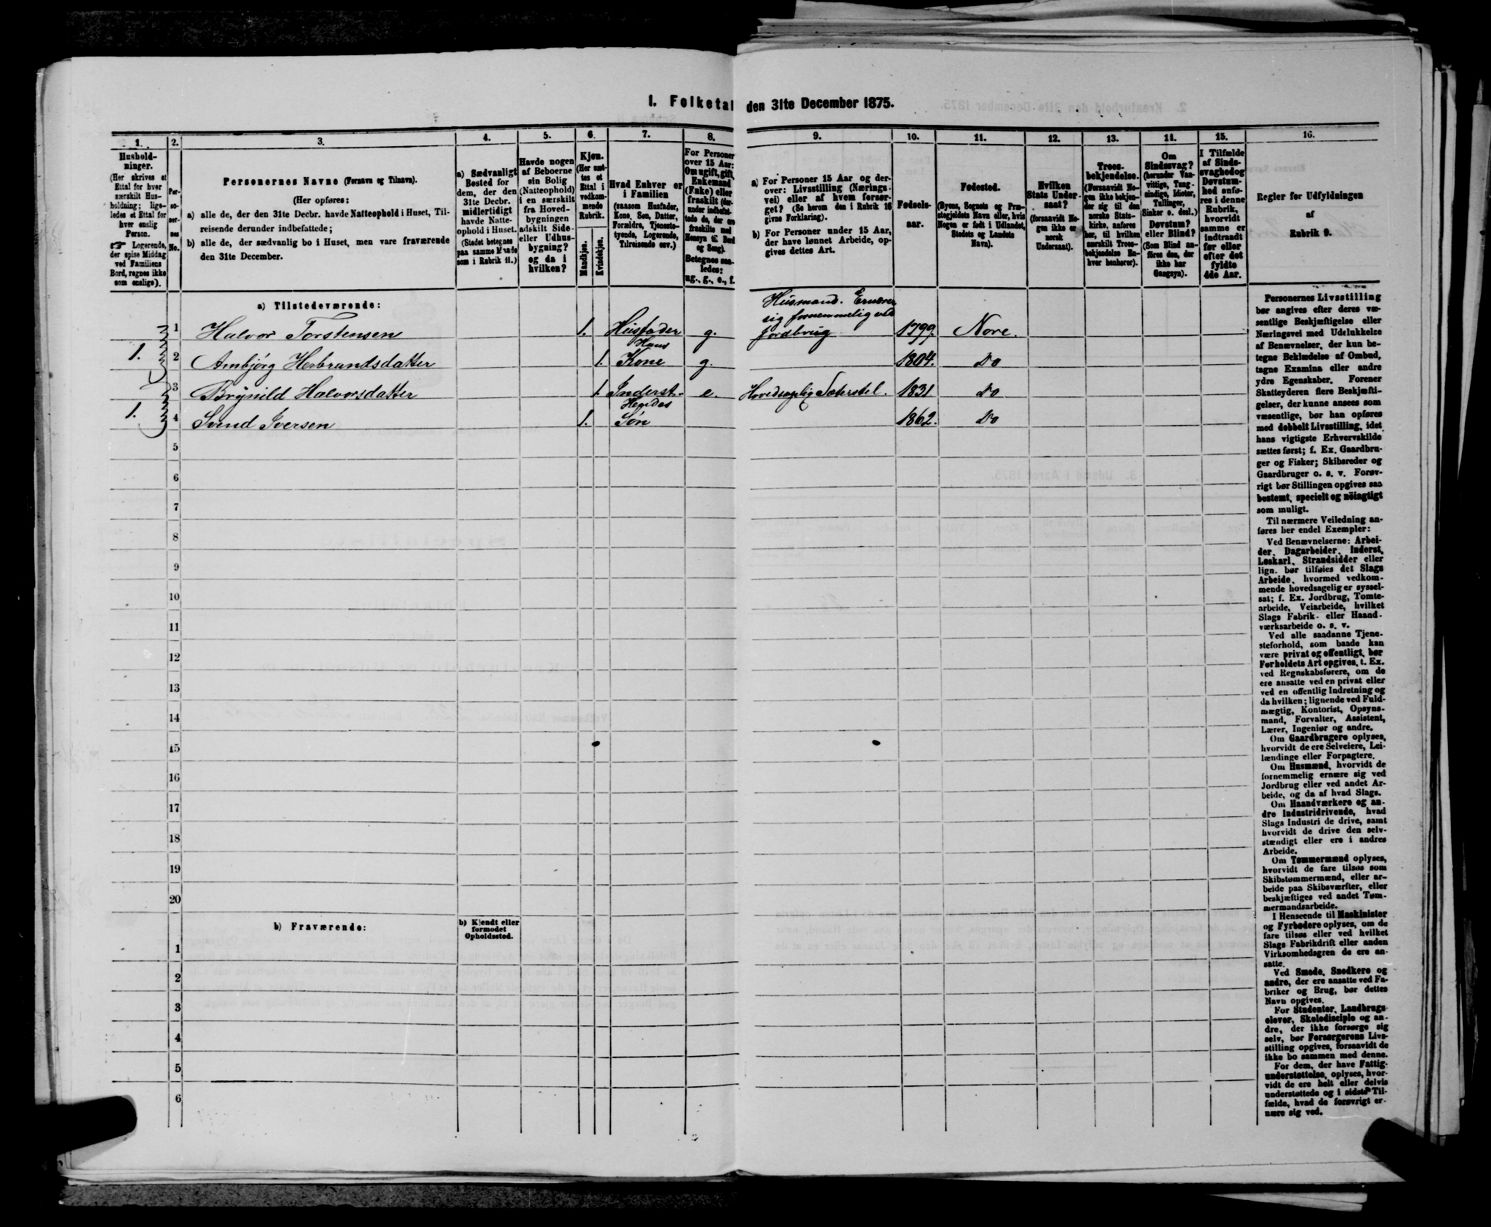 I. Folketal den 31te December 1875.
1. 2. 3. 4. 5. 6. 7. 8. 9. 10. 11. 12. 13. 14. 15. 16.
Husholdninger.
(Her skrives et
Ettal for hver
særskilt Husholdning;
ligeledes et Ettal for
hver enslig
Person.
Logerende,
der spise Middag
ved Familiens
Bord, regnes ikke
som enslige).
Personernes No.
Personernes Navne (Fornavn og Tilnavn).
(Her opføres:)
a) alle de, der den 31te Decbr. havde Natteophold i Huset, Tilreisende derunder indbefattede;
b) alle de, der sædvanlig bo i Huset, men vare fraværende
den 31te December.
a) Sædvanligt
Bosted for
dem, der den
31te Decbr.
midlertidigt
havde Natteophold i Huset.
(Stedet betegnes
paa samme Maade
som i Rubrik 11.)
Havde nogen
af Beboerne
sin Bolig
(Natteophold)
i en særskilt
fra Hovedbygningen
adskilt Side-
eller Udhusbygning?
og da i
hvilken?
Kjøn.
(Her sættes et
Ettal i
vedkommende
Rubrik.
Mandkjøn.
Kvindekjøn.
Hvad Enhver er
i Familien
(saasom Husfader,
Kone, Søn, Datter,
Forældre, Tjenestetyende, Logerende,
Tilreisende osv.)
For Personer
over 15 Aar:
Om ugift, gift,
Enkemand
(Enke) eller
fraskilt
Betegnes saaledes:
ug., g., e., f.
a) For Personer 15 Aar og derover: Livsstilling (Næringsvei) eller af hvem forsørget? (Se herom den i Rubrik 16
givne Forklaring).
b) For Personer under 15 Aar,
der have lønnet Arbeide, opgives dettes Art.
Fødselsaar.
Fødested.
(Byens, Sognets og Præstegjeldets Navn eller, hvis
Nogen er født i Udlandet,
Stedets og Landets
Navn).
Hvilken
Stats Undersaat?
(forsaavidt Nogen ikke er
norsk
Undersaat).
Troesbekjendelse.
(Forsaavidt Nogen ikke bekjender sig til den
norske Statskirke, anføres
her, til hvilken
særskilt Troesbekjendelse Enhver henhører).
Om
Sindssvag?
(herunder Vanvittige, Tungsindige, Idioter,
Tullinger,
Sinker o. desl.)
Døvstum?
eller Blind?
(Som Blind anføres den, der
ikke har
Gangsyn).
I Tilfælde
af Sindssvaghed og
Døvstumhed anføres i denne
Rubrik,
hvorvidt
samme er
indtraadt
før eller
efter det
fyldte
4de Aar.
Regler for Udfyldningen
af
Rubrik 9.
a) Tilstedeværende:
1 Halvor Torstensen 1. Husfader g. Husmand. Ernærer sig fornemmelig ved Jordbrug 1799 Nore.
1. 2 Ambjørg Herbrandsdatter 1. Hans Kone g. 1804. Do
3 Brynild Halvorsdatter 1 Inderst. e. 1831 Do
1. 4 Svend Iversen 1. Hendes Søn 1862. Do
5
6
7
8
9
10
11
12
13
14
15
16
17
18
19
20
b) Fraværende:
b) Kjendt eller
formodet
Opholdssted.
1
2
3
4
5
6
Personernes Livsstilling
bør angives efter deres væsentlige Beskjæftigelse eller
Næringsvei med Udelukkelse
af Benævnelser, der kun betegne Beklædelse af Ombud,
tagne Examina eller andre
ydre Egenskaber. Forener
Skatteyderen flere Beskjæftigelser, der kunne ansees som
væsentlige, bør han opføres
med dobbelt Livsstilling, idet
hans vigtigste Erhvervskilde
sættes først; f. Ex. Gaardbruger og Fisker; Skibsreder og
Gaardbruger o. s. v. Forøvrigt bør Stillingen opgives saa
bestemt, specielt og nøiagtigt
som muligt.
Til nærmere Veiledning anføres her endel Exempler:
Ved Benævnelserne: Arbeider, Dagarbeider, Inderst,
Løskarl, Strandsidder eller
lign. bør tilføies det Slags
Arbeide, hvormed vedkommende hovedsagelig er sysselsat; f. Ex. Jordbrug, Tomtearbeide, Veiarbeide, hvilket
Slags Fabrik- eller Haandværksarbeide o. s. v.
Ved alle saadanne Tjenesteforhold, som baade kan
være privat og offentligt, bør
Forholdets Art opgives, t. Ex.
ved Regnskabsførere, om de
ere ansatte ved en privat eller
ved en offentlig Indretning og
da hvilken; lignende ved Fuldmægtig, Kontorist, Opsynsmand, Forvalter, Assistent,
Lærer, Ingeniør og andre.
Om Gaardbrugere oplyses,
hvorvidt de ere Selveiere, Leilændinge eller Forpagtere.
Om Husmænd, hvorvidt de
fornemmelig ernære sig ved
Jordbrug eller ved andet Arbeide, og da af hvad Slags.
Om Haandværkere og andre Industridrivende, hvad
Slags Industri de drive, samt
hvorvidt de drive den selvstændigt eller ere i andres
Arbeide.
Om Tømmermænd oplyses,
hvorvidt de fare tilsøs som
Skibstømmermænd, eller arbeide paa Skibsværfter, eller
beskjæftiges ved andet Tømmermandsarbeide.
I Henseende til Maskinister
og Fyrbødere oplyses, om de
fare tilsøs eller ved hvilket
Slags Fabrikdrift eller anden
Virksomhedsgren de ere ansatte.
Ved Smede, Snedkere og
andre, der ere ansatte ved Fabriker og Brug, bør dettes
Navn opgives.
For Studenter, Landbrugselever, Skoledisciple og andre, der ikke forsørge sig
selv, bør Forsørgerens Livsstilling opgives, forsaavidt de
ikke bo sammen med denne.
For dem, der have Fattigunderstøttelse, oplyses, hvorvidt de ere helt eller delvis
understøttede og i sidste Tilfælde, hvad de forøvrigt ernære sig ved.